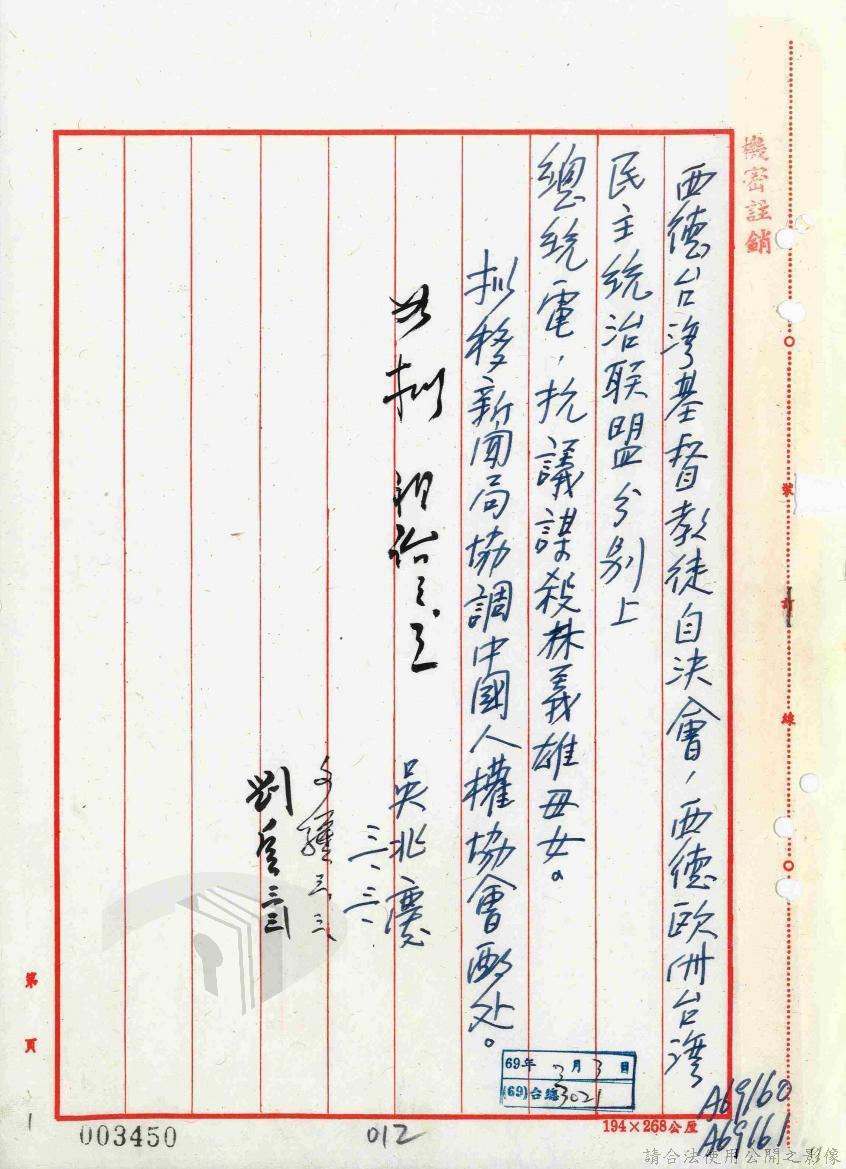 機密註銷
西德台灣基督教徒自決會，西德歐洲台灣
民主統治联盟分别上
總統電，抗議謀殺林義雄母女。
拟移新聞局協調中國人權協會酌处。
如拟
三、三、
吳北慶
三、三、
劉
裝
訂
線
第
頁
1
69年3月3日
(69)台總3021
194×268公厘
A69160
A69161
003450
012
請合法使用公開之影像